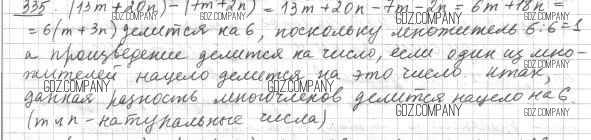 335. (13m+20n)-(7m+2n) = 13m+20n-7m-2n = 6m+18n =
= 6(m+3n) делится на 6, поскольку множитель 6:6=1
а произведение делится на число, если один из мно-
жителей нацело делится на это число. итак,
данная разность многочленов делится нацело на 6.
(m и n - натуральные числа).
GDZ.COMPANY
GDZ.COMPANY
GDZ.COMPANY
GDZ.COMPANY
GDZ.COMPANY
GDZ.COMPANY
GDZ.COMPANY
GDZ.COMPANY
GDZ.COMPANY